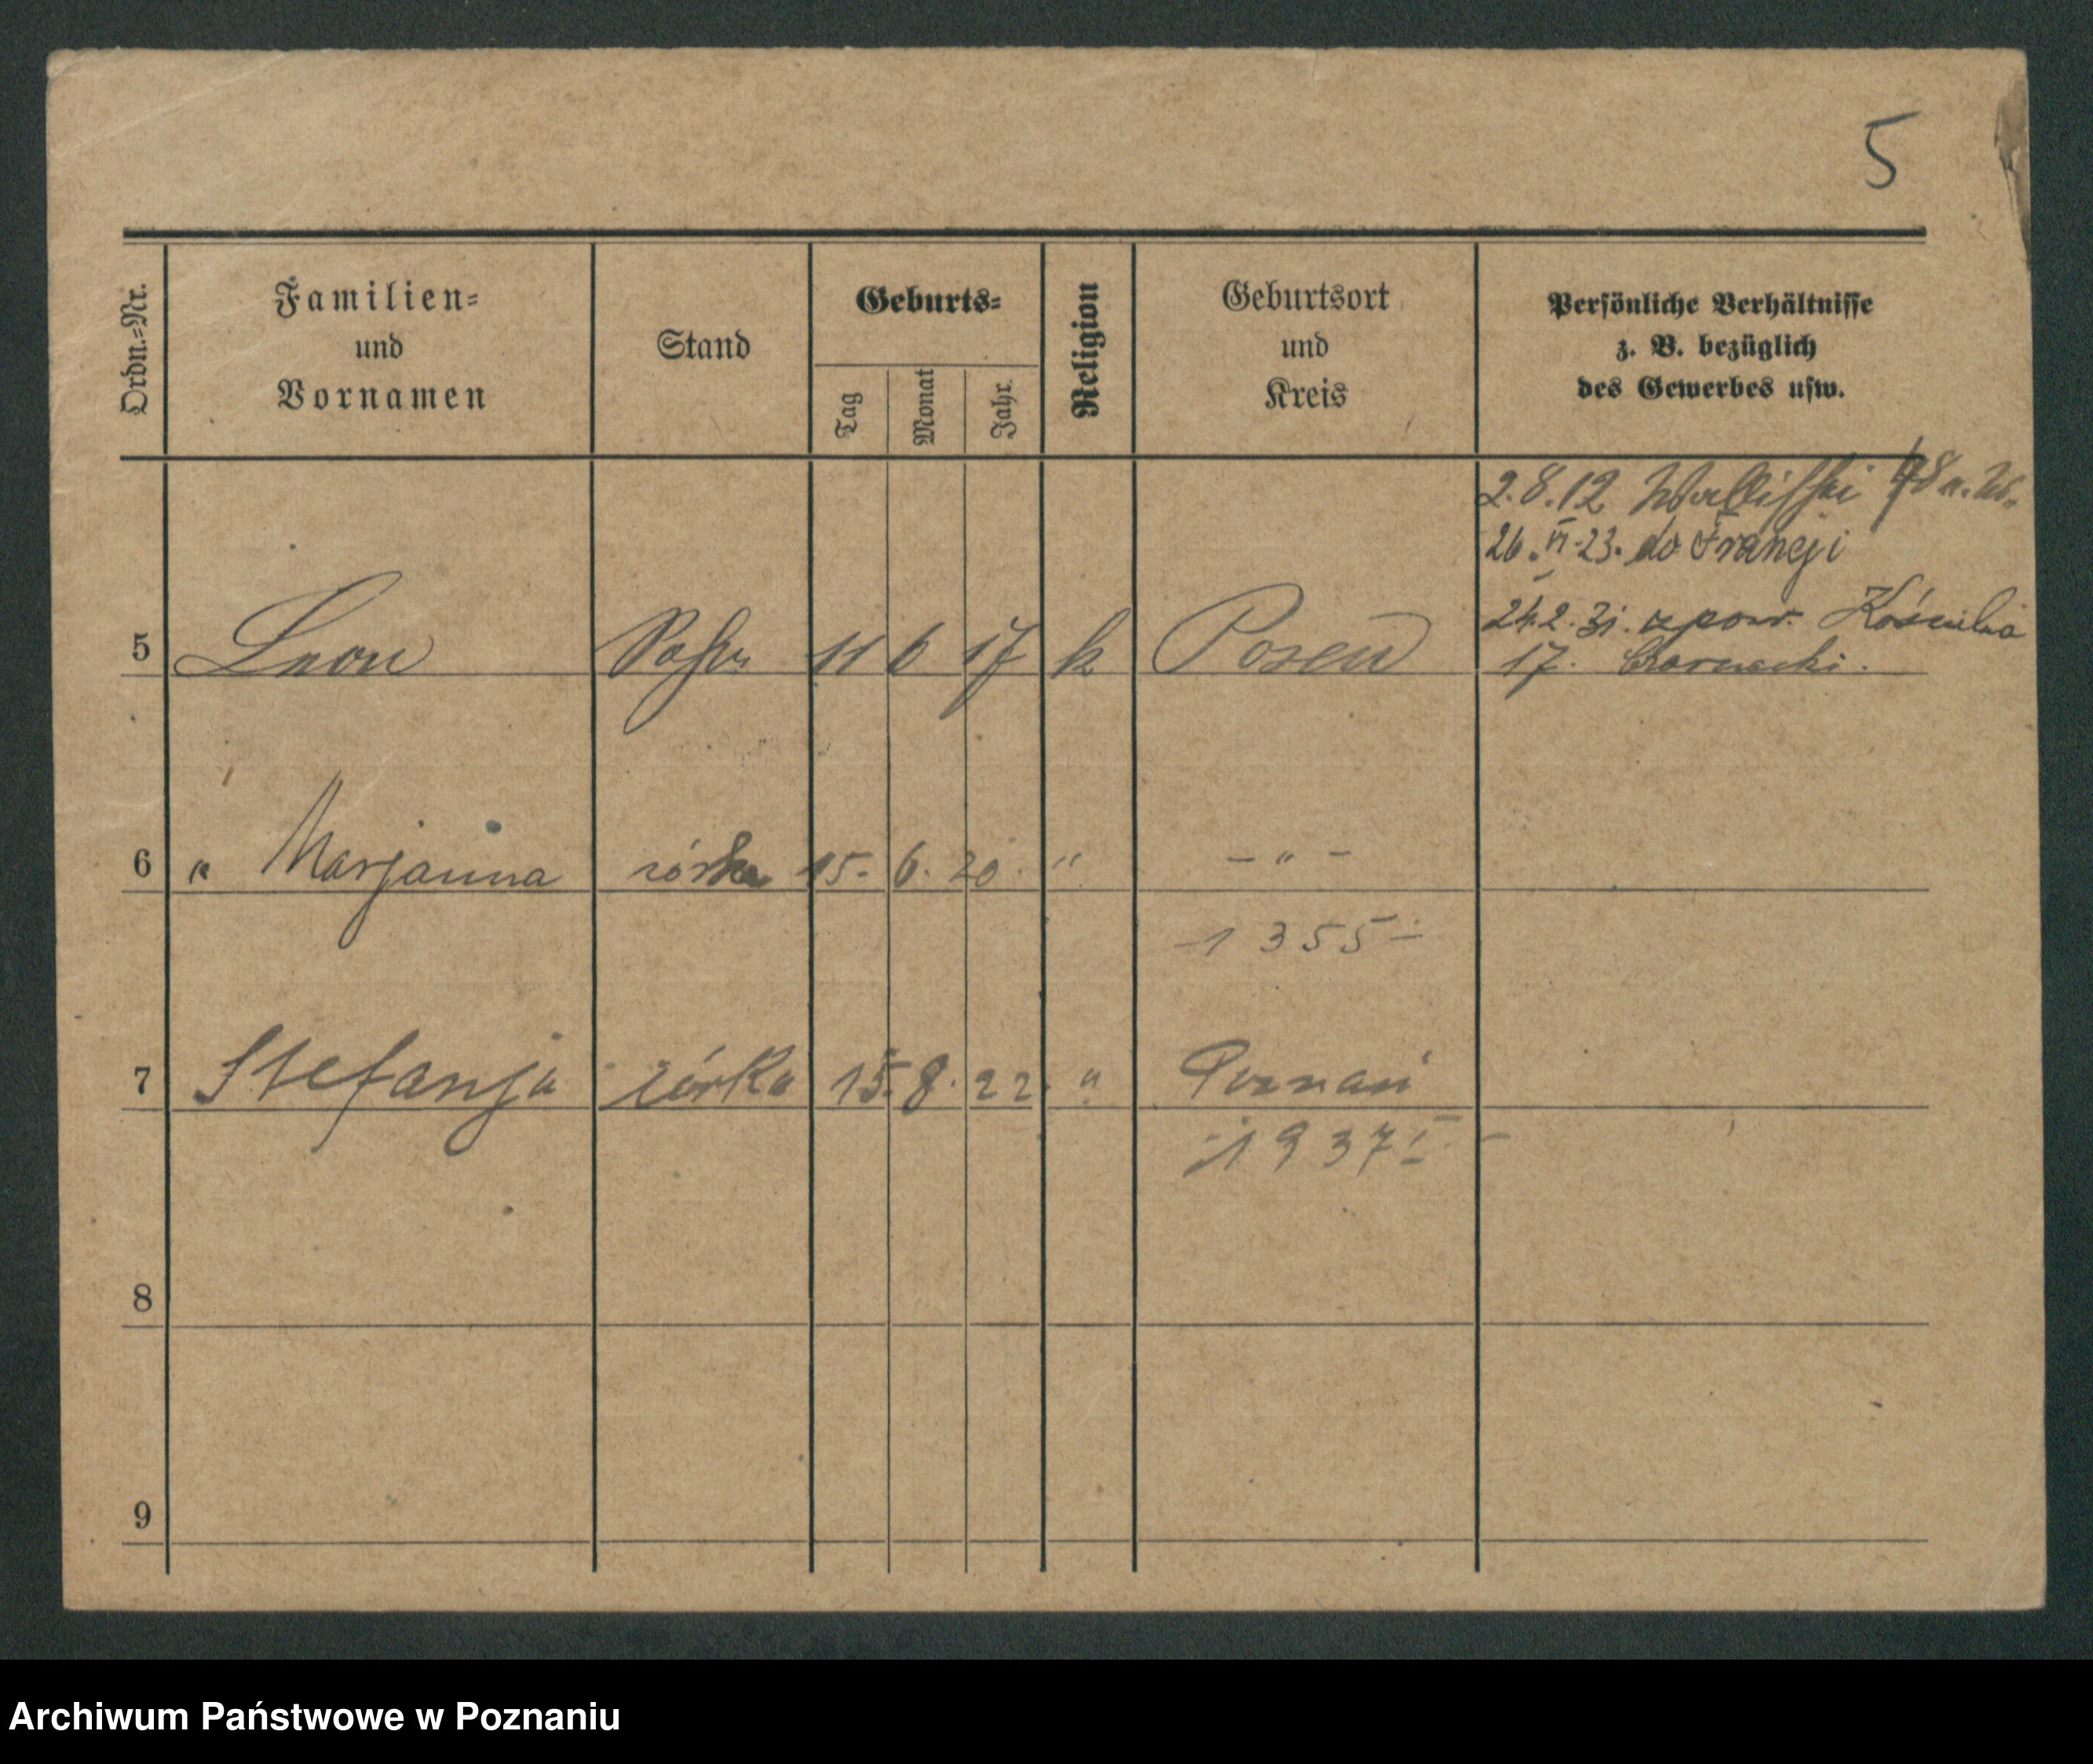 5
Ordn.-Nr.
Familien-
und
Vornamen
Stand
Geburts-
Tag
Monat
Jahr.
Religion
Geburtsort
und
Kreis
Persönliche Verhältnisse
z. B. bezüglich
des Gewerbes usw.
2.8.12
26.VI.23. do Francji
24.2.31. z pow.
17. Czarnecki.
5 Leon Sohn 11 6 17 k Posen
6 " Marjanna córka 15. 6. 20. " - " -
- 1355 -
7 Stefanja córka 15. 8. 22. " Poznań
- 1937 -
8
9
Archiwum Państwowe w Poznaniu